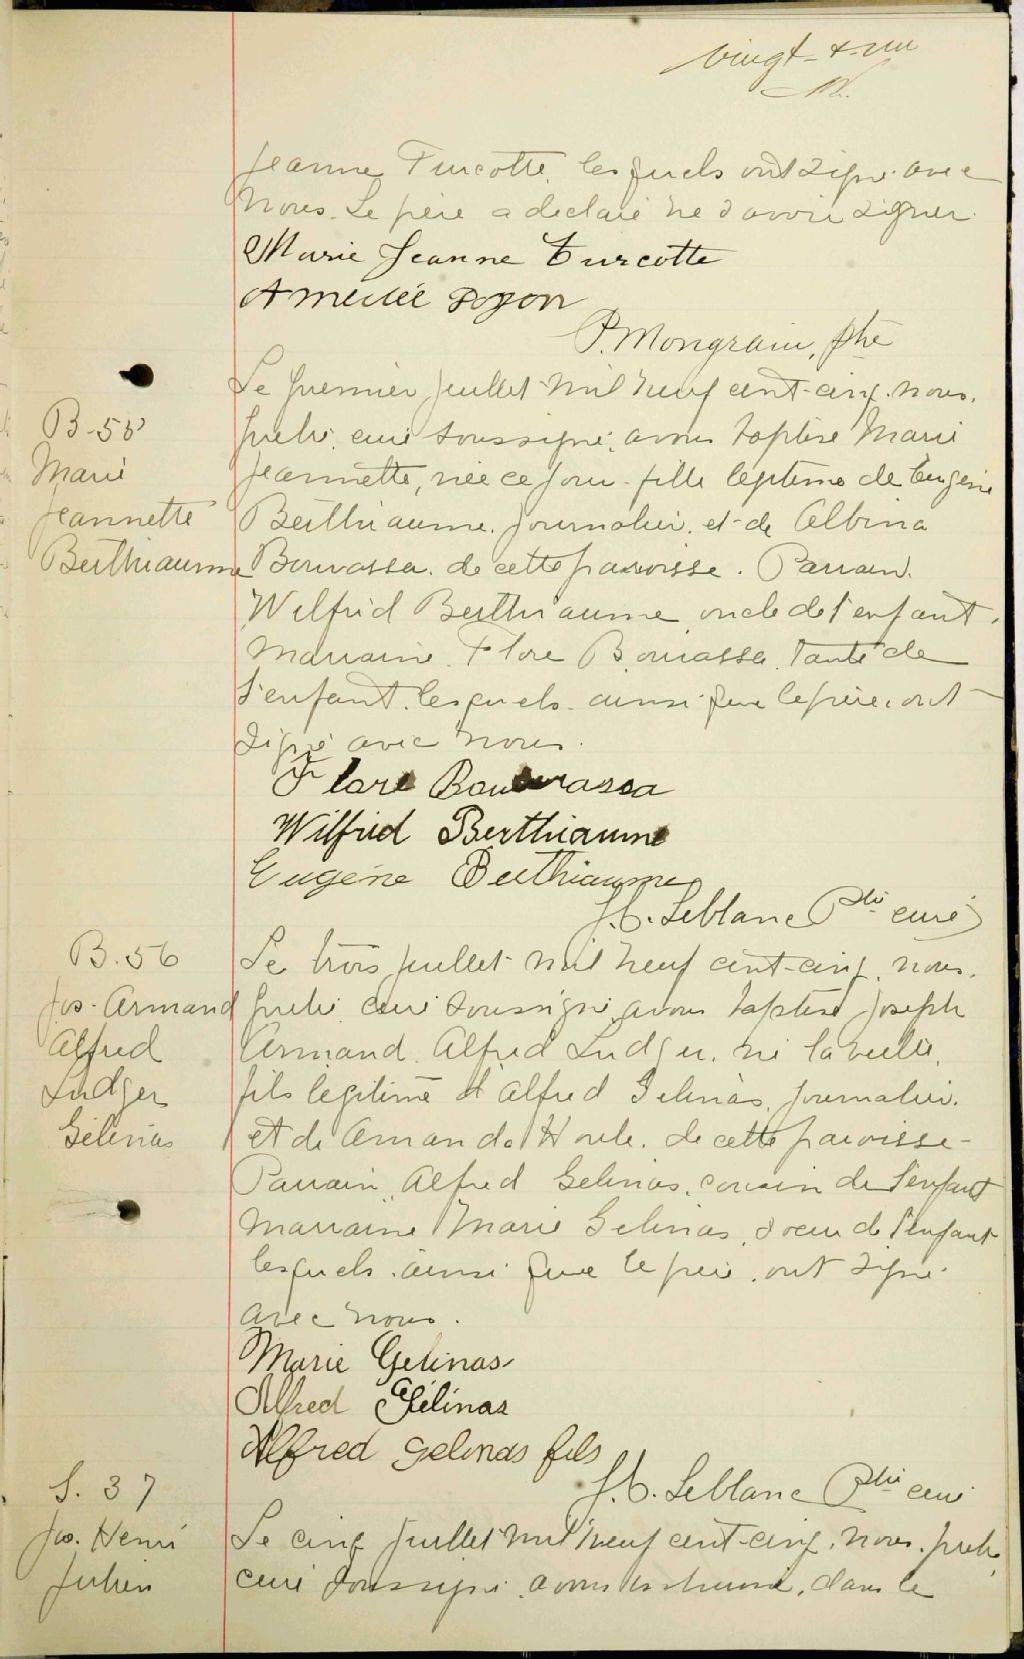 vingt-&-un
Jeanne Turcotte, lesquels ont signé avec
nous. Le père a declaré ne savoir signer.
Marie Jeanne Turcotte
Amedée
P. Mongrain, ptre
Le premier juillet mil neuf cent-cinq, nous,
B-55
prêtre curé soussigné, avons baptisé Marie
Marie
Jeannette, née ce jour, fille legitime de Eugène
Jeannette
Berthiaume, journalier, et de Albina
Berthiaume
Bourassa, de cette paroisse. Parrain,
Wilfrid Berthiaume, oncle de l'enfant,
marraine, Flore Bourassa, tante de
l'enfant, lesquels, ainsi que le père, ont
signé avec nous.
Flore Bourassa
Wilfrid Berthiaume
Eugène Berthiaume
J. C. Leblanc Ptre curé
B. 56
Le trois juillet mil neuf cent-cinq, nous,
Jos. Armand
prêtre curé soussigné, avons baptisé Joseph
Alfred
Armand Alfred Ludger, né la veille,
Ludger
fils legitime d'Alfred Gelinas, journalier,
Gélinas
et de Amanda Houle, de cette paroisse-
Parrain, Alfred Gelinas, cousin de l'enfant
marraine Marie Gelinas, soeur de l'enfant
lesquels, ainsi que le père, ont signé
avec nous.
Marie Gelinas
Alfred Gélinas
Alfred Gelinas fils
J. C. Leblanc Ptre curé
S. 37
Jos. Henri
Le cinq juillet mil neuf cent-cinq, nous, prêtre
Julien
curé soussigné, avons inhumé, dans le